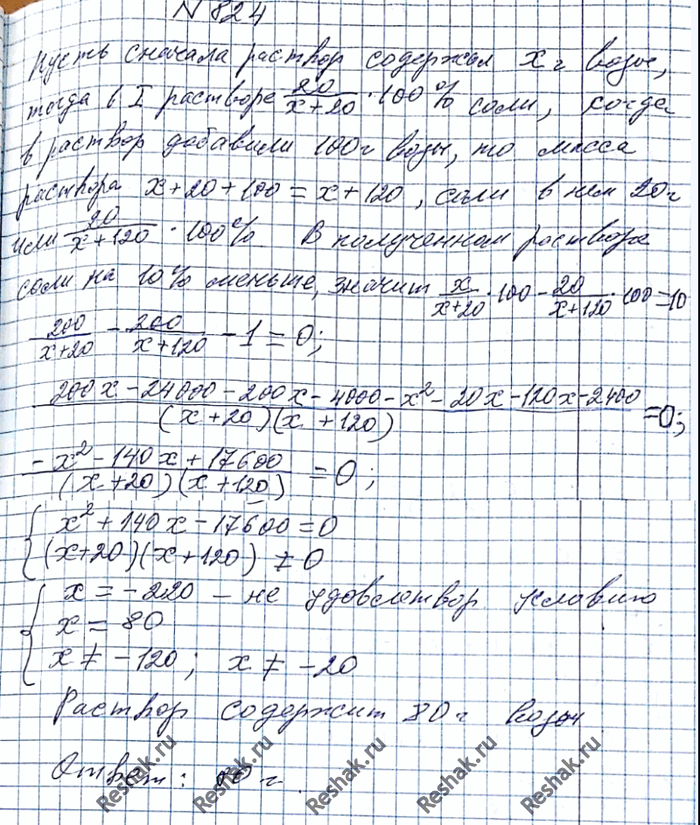 N 824
Пусть сначала раствор содержал x г воды,
тогда в I растворе 20/(x+20) · 100% соли, когда
в раствор добавили 100г воды, то масса
раствора x+20+100=x+120, соли в нём 20г
или 20/(x+120) · 100% В полученном растворе
соли на 10% меньше, значит x/(x+20) · 100 - 20/(x+120) · 100 = 10
200/(x+20) - 200/(x+120) - 1 = 0;
(200x - 24000 - 200x - 4000 - x² - 20x - 120x - 2400)/((x+20)(x+120)) = 0;
(-x² - 140x + 17600)/((x+20)(x+120)) = 0;
{ x² + 140x - 17600 = 0
(x+20)(x+120) ≠ 0
{ x = -220 - не удовлетвор условию
x = 80
x ≠ -120; x ≠ -20
Раствор содержит 80г воды
Ответ: 80 г.
Reshak.ru Reshak.ru Reshak.ru Reshak.ru